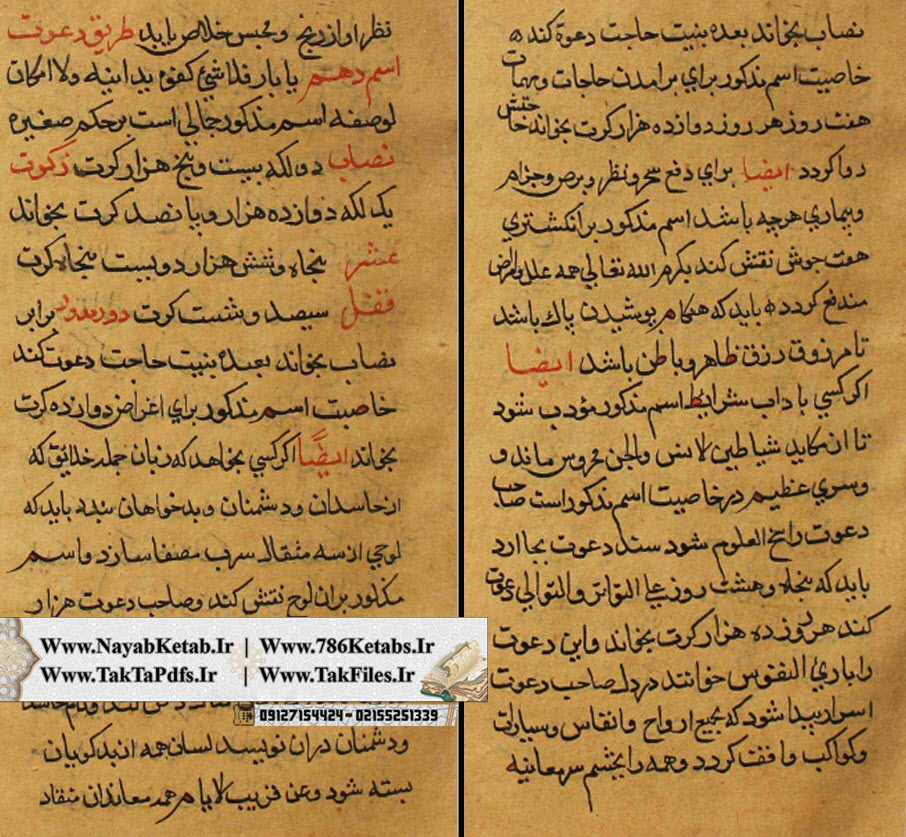 نصاب بخواند بعده بنیت حاجت دعوة کند ه
خاصیت اسم مذکور برای برامدن حاجات و مهمات
هفت روز هر روز دوازده هزار کرت بخواند حاجتش
روا کردد ایضا برای دفع سحر و نظر و برص و جزام
و بیماری هرچه باشد اسم مذکور بر انکشتری
هفت جوش نقش کند بکرم الله تعالی همه علل و امراض
مندفع کردد ه باید که هنکام پوشیدن پاک باشد
تا مرزوق رزق ظاهر و باطن باشد ایضا
اکر کسی باداب شرایط اسم مذکور مؤدب شود
تا از مکاید شیاطین لانس والجن محروس ماند و
وسری عظیم در خاصیت اسم مذکور است صاحب
دعوت راسخ العلوم شود سند دعوت بجا ارد
باید که پنجاه و هشت روز علی التواتر والتوالی دعوت
کند هر روز ده هزار کرت بخواند واین دعوت
را باری النفوس خوانند در دل صاحب دعوت
اسرار پیدا شود که بجمیع ارواح و انفاس و سیارات
و کواکب واقفت کردد و همه را بچشم سر معاینه
نظر او از رنج و محبس خلاص یابد طریق دعوت
اسم دهم یا بار فلا شئ کفوه یدانیه ولا امکان
لوصفه اسم مذکور جمالی است بر حکم صغیره
نصاب دو لکه بیست و پنج هزار کرت زکوت
یک لکه دوازده هزار و پانصد کرت بخواند
عشر پنجاه و شش هزار دویست پنجاه کرت
قفل سیصد و شست کرت دور مدور برابر
نصاب بخواند بعده بنیت حاجت دعوت کند
خاصیت اسم مذکور برای اغراض دوازده کرت
بخواند ایضًا اکر کسی بخواهد که زبان جمله خلائق که
از حاسدان و دشمنان و بدخواهان بندد باید که
لوحی از سه مثقال سرب مصفا سازد واسم
مذکور بران لوح نقش کند و صاحب دعوت هزار
Www.NayabKetab.Ir | Www.786Ketabs.Ir
Www.TakTaPdfs.Ir | Www.TakFiles.Ir
09127154424 - 02155251339
کند و نام حاسد
ودشمنان دران نویسد لسان همه از بدکویان
بسته شود و عن قریب لایام همه معاندان منقاد